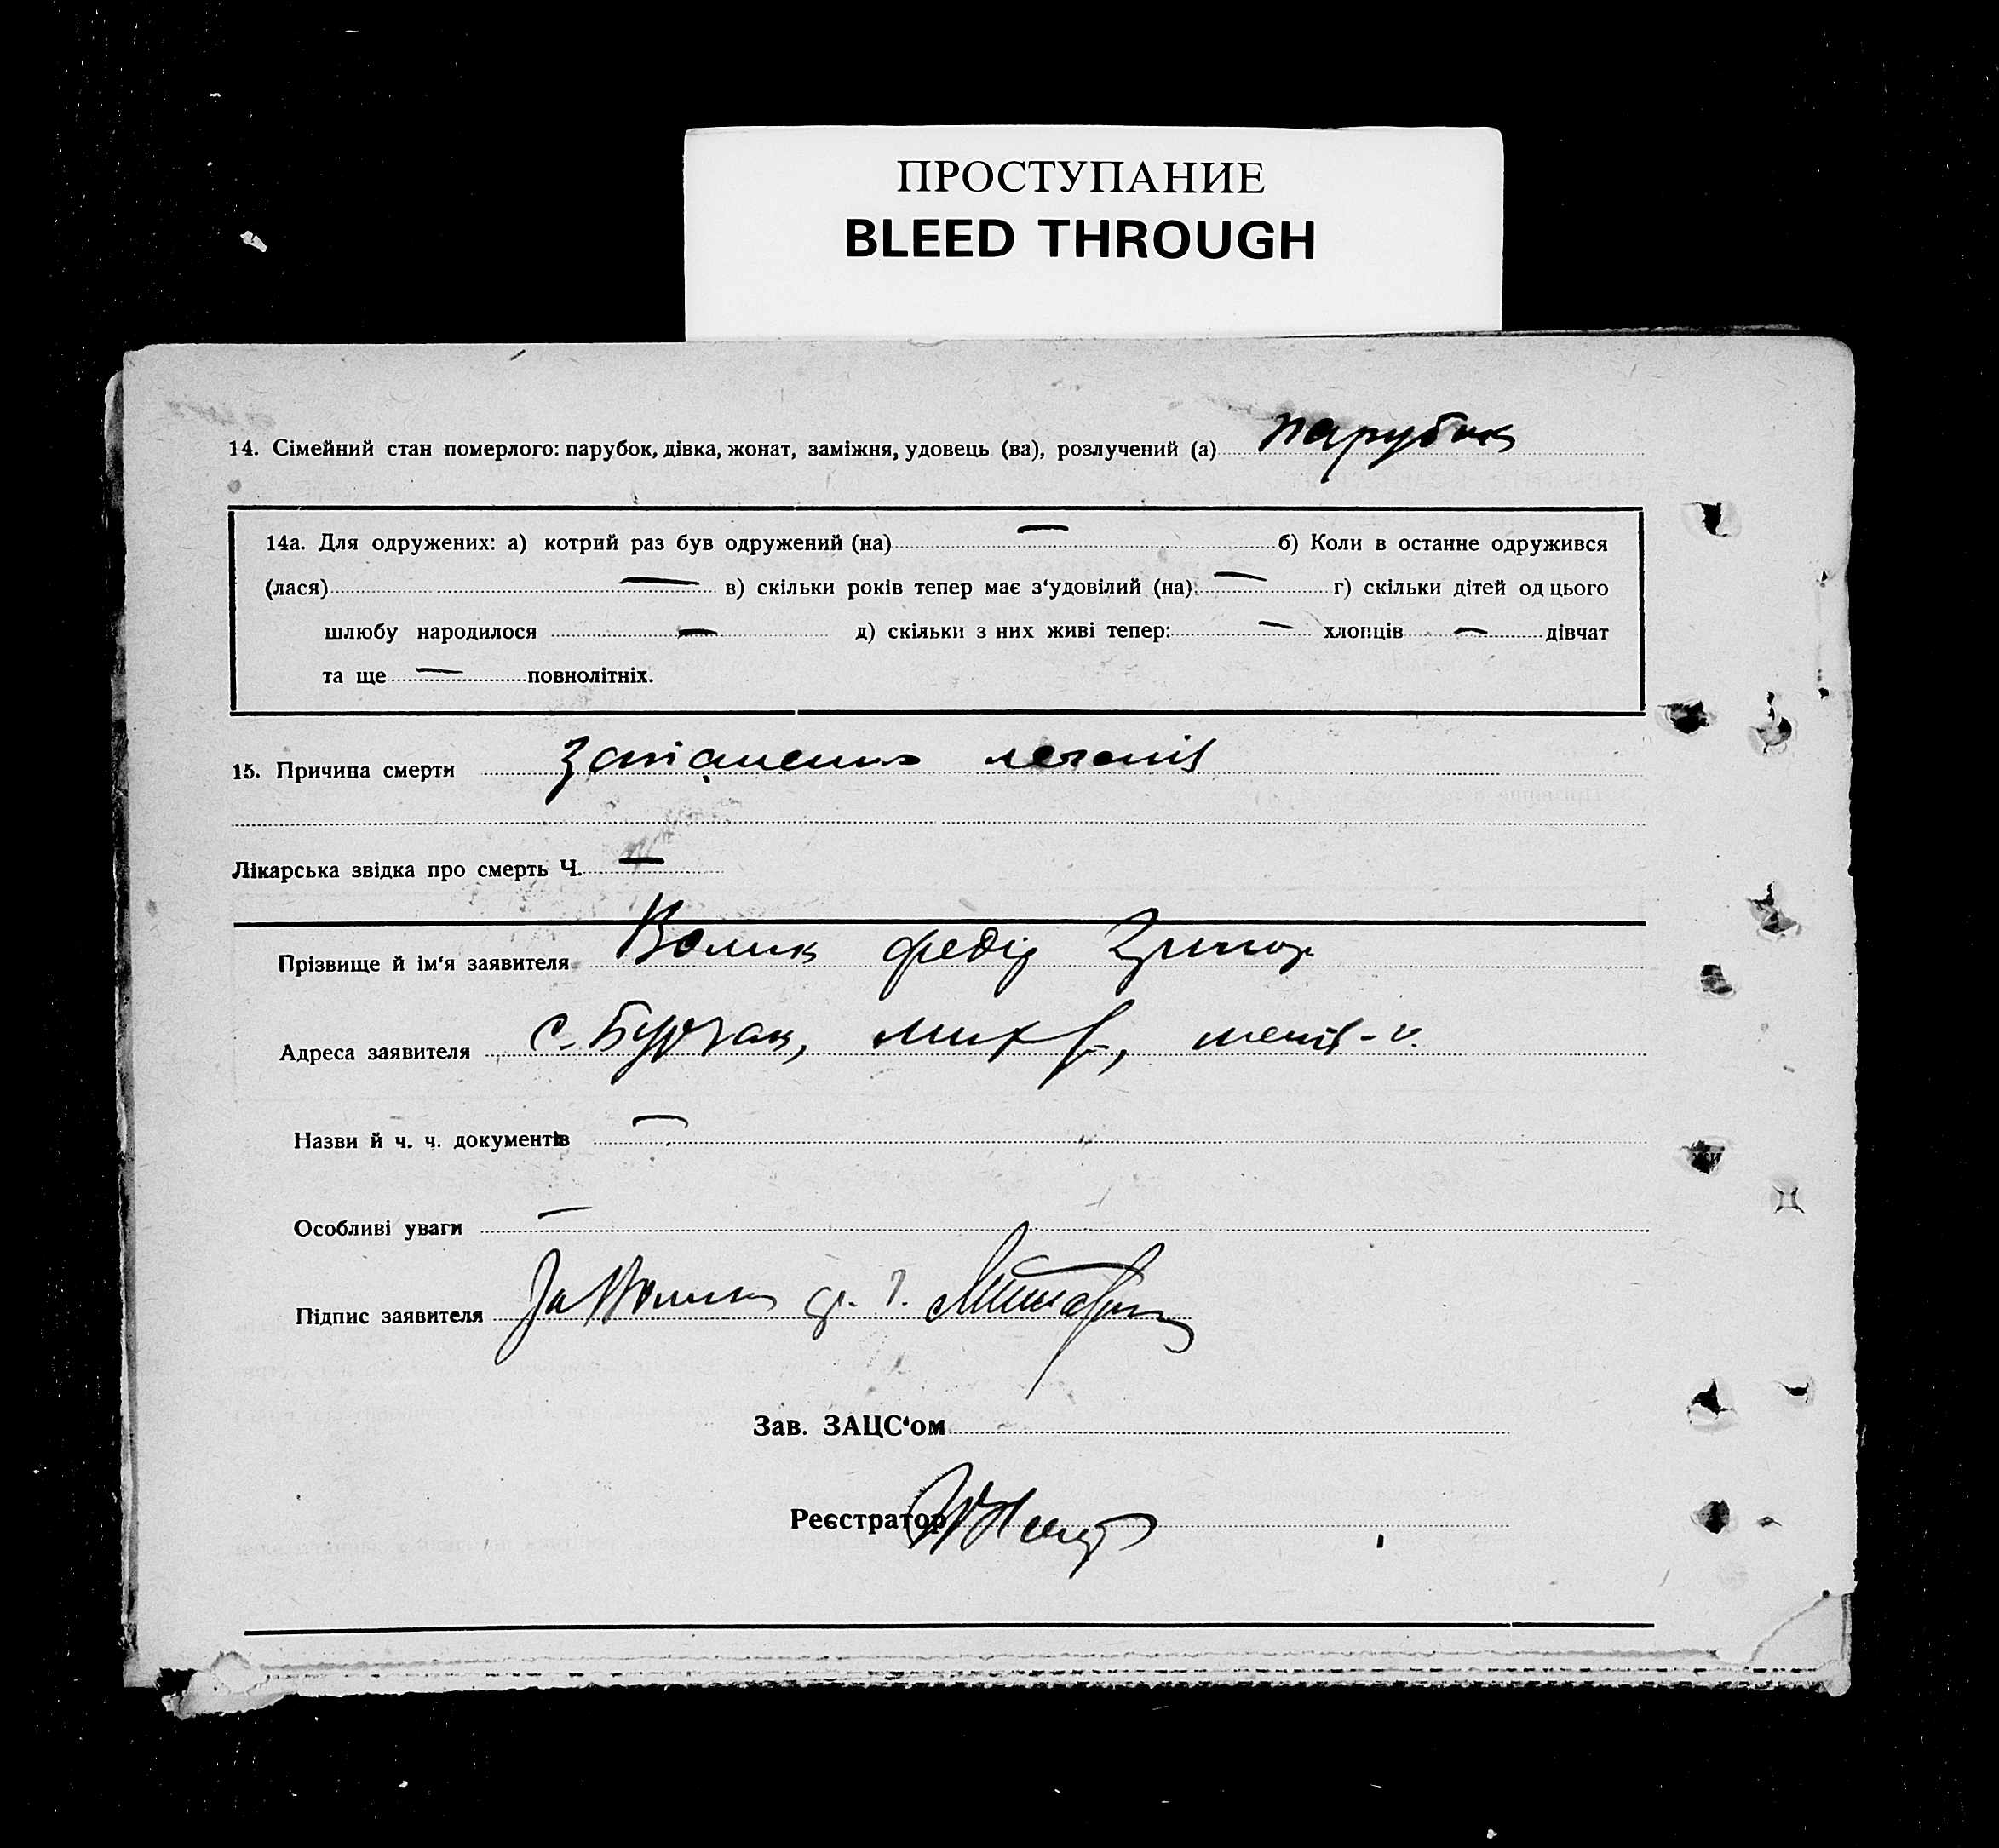 ПРОСТУПАНИЕ
BLEED THROUGH
14. Сімейний стан померлого: парубок, дівка, жонат, заміжня, удовець (ва), розлучений (а) парубок
14а. Для одружених: а) котрий раз був одружений (на) — б) Коли в останне одружився
(лася) — в) скільки років тепер має з'удовілий (на): — г) скільки дітей од цього
шлюбу народилося — д) скільки з них живі тепер: — хлопців — дівчат
та ще — повнолітніх.
15. Причина смерти запаление легенів
Лікарська звідка про смерть Ч. —
Прізвище й ім'я заявителя Волик федір Григор
Адреса заявителя с. Бурчак, мих
Назви й ч. ч. документів —
Особливі уваги —
Підпис заявителя За
Зав. ЗАЦС'ом
Реєстратор